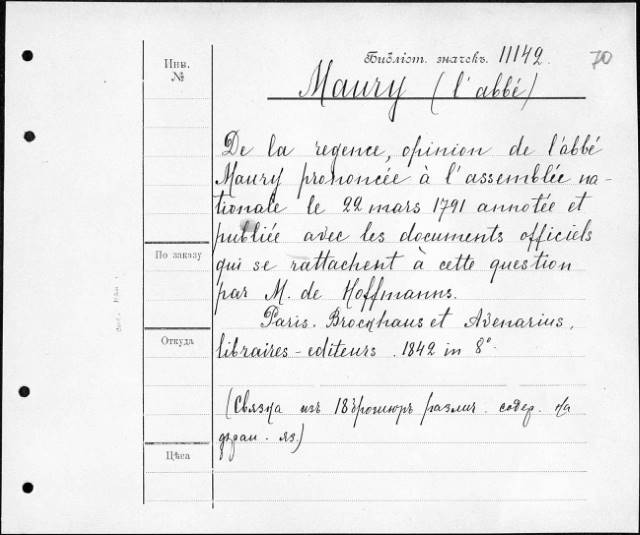 Инв.
№
Библіот. значекъ. 11142.
70
Maury (l'abbé)
De la regence, opinion de l'abbé
Maury prononcée à l'assemblée na-
tionale le 22 mars 1791 annotée et
publiée avec les documents officiels
qui se rattachent à cette question
par M. de Hoffmanns.
Paris. Brockhaus et Avenarius,
libraires-editeurs. 1842 in 8°.
(Связка изъ 18 брошюръ различ. содер. на
фран. яз.)
По заказу
Откуда
Цѣна